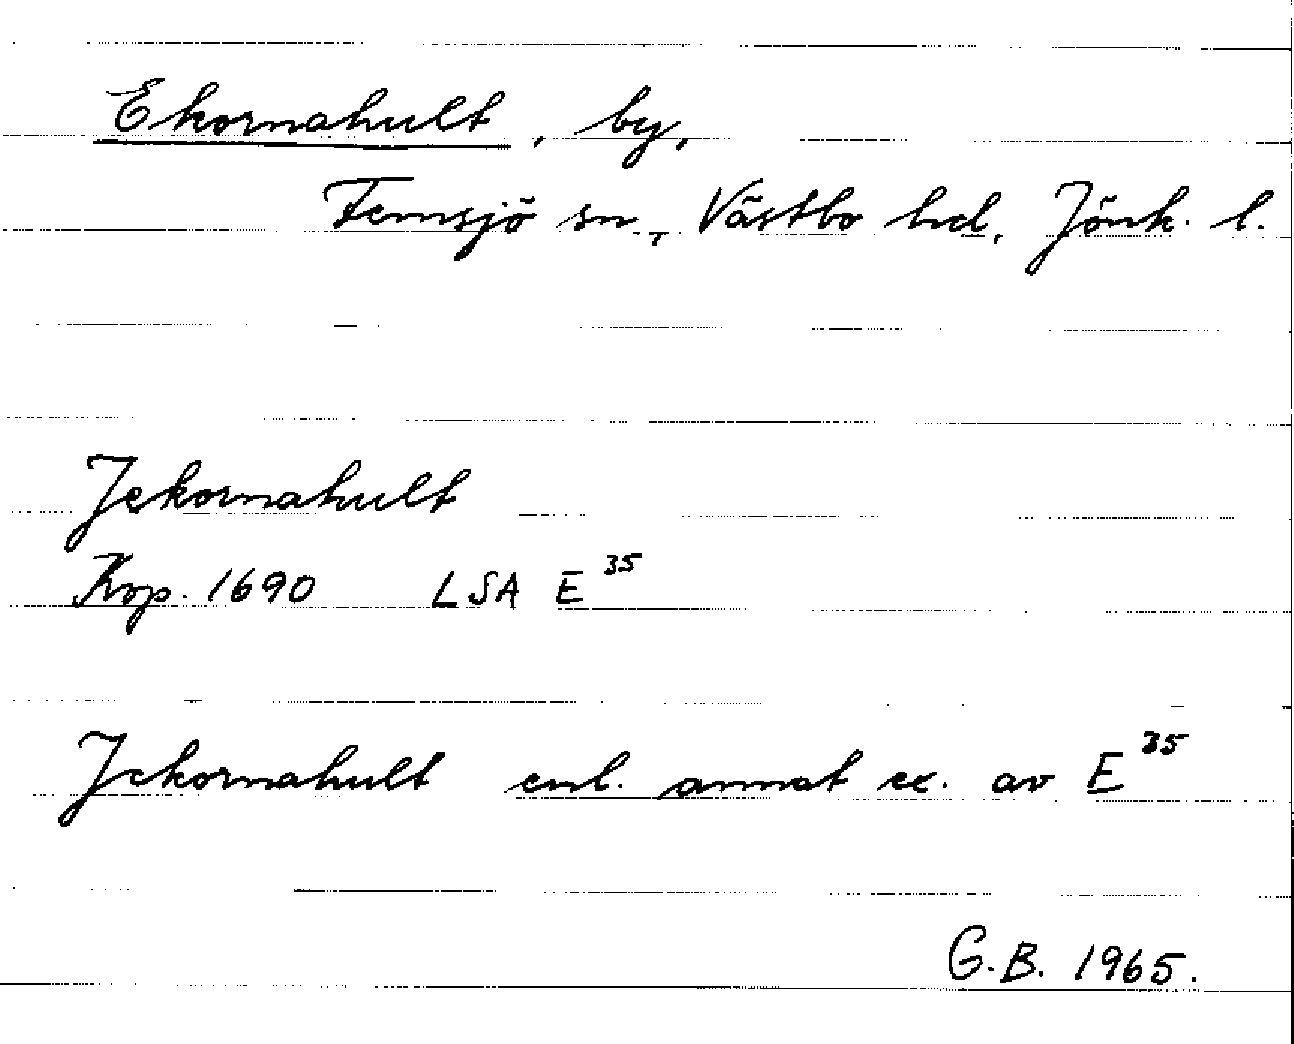 Ekornahult, by,
Femsjö sn., Västbo hd, Jönk. l.
Jekornahult
Kop. 1690 LSA E 35
Jckornahult enl. annat ex. av E 35
G.B. 1965.